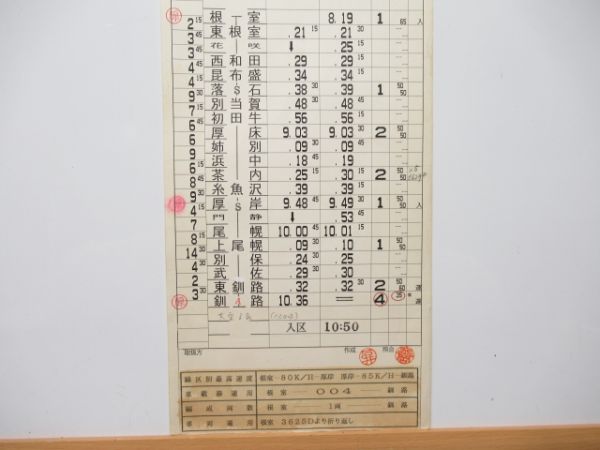 根室 8.19 1 65 人
2 15 東根室 .21 15 .21 30
3 花咲 ↓ .25 15
3 45 西和田 .29 .29
4 昆布盛 .34 .34 15
4 落石 .38 30 .39 1 50 50
9 30 別当賀 .48 30 .48 45
7 45 初田牛 .56 .56 15
6 厚床 9.03 9.03 30 2 50 50
6 姉別 .09 30 .09 45
9 浜中 .18 .19
6 茶内 .25 15 .30 15 2 50 50
8 糸魚沢 .39 .39 15
9 厚岸 9.48 45 9.49 30 1 50 人
4 15 門静 ↓ .53 45
7 尾幌 10.00 45 10.01 15
8 15 上尾幌 .09 30 .10 1 50 50
14 別保 .24 30 .25
4 30 武佐 .29 30 .30
2 東釧路 .32 .32 30 2 50 60
3 釧路 10.36 ＝ 4 35
入区 10:50
取扱方 作成 照合
線区別最高速度 根室－80K/H－厚岸 厚岸－85K/H－釧路
車載器運用 根室 004 釧路
編成両数 根室 1両 釧路
車両運用 根室 3625Dより折り返し